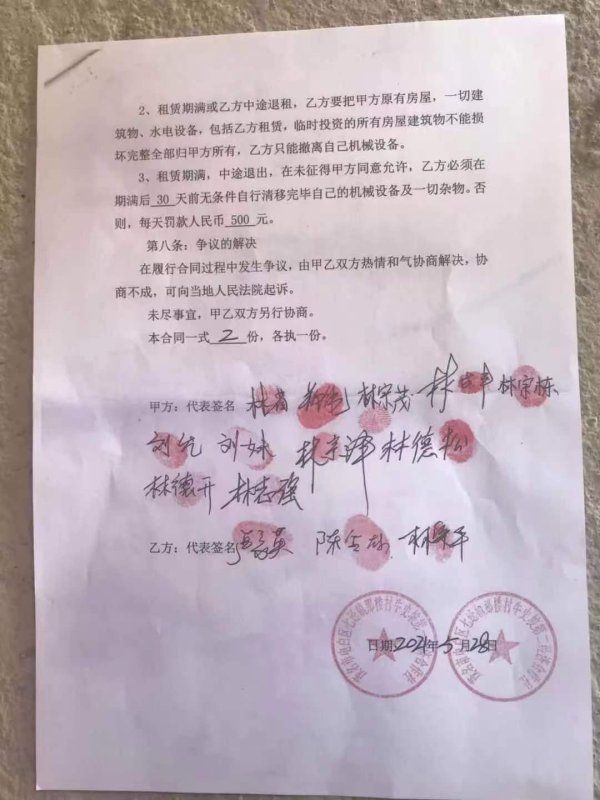 2、租赁期满或乙方中途退租，乙方要把甲方原有房屋，一切建
筑物、水电设备，包括乙方租赁，临时投资的所有房屋建筑物不能损
坏完整全部归甲方所有，乙方只能撤离自己机械设备。
3、租赁期满，中途退出，在未征得甲方同意允许，乙方必须在
期满后 30 天前无条件自行清移完毕自己的机械设备及一切杂物。否
则，每天罚款人民币 500 元。
第八条：争议的解决
在履行合同过程中发生争议，由甲乙双方热情和气协商解决，协
商不成，可向当地人民法院起诉。
未尽事宜，甲乙双方另行协商。
本合同一式 2 份，各执一份。
甲方：代表签名 林宗茂 林宗栋
刘妹 林宗泽 林德松
林德开 林志强
乙方：代表签名
日期：2021年5月28日